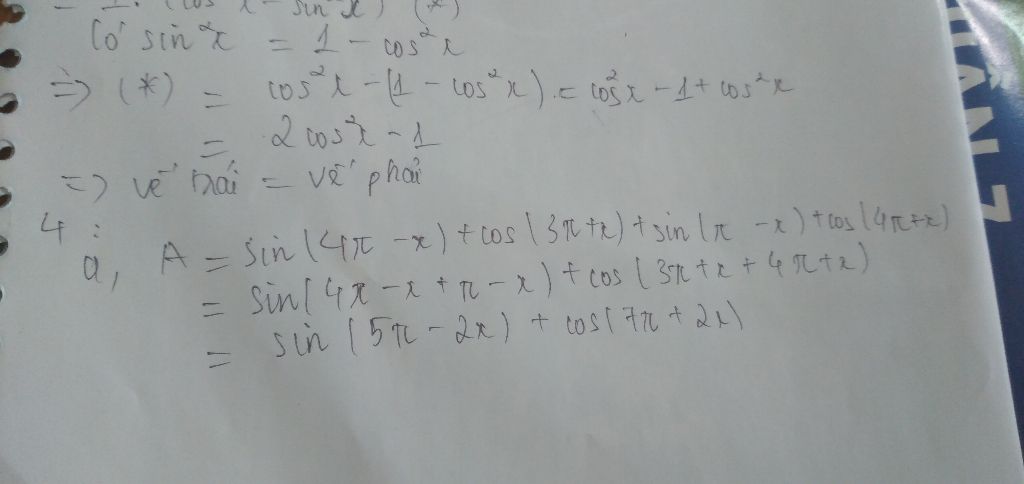 = 1. (cos²x - sin²x) (*)
Có sin²x = 1 - cos²x
=> (*) = cos²x - (1 - cos²x) = cos²x - 1 + cos²x
= 2cos²x - 1
=> vế trái = vế phải
4:
a, A = sin(4π - x) + cos(3π+x) + sin(π - x) + cos(4π+x)
= sin(4π - x + π - x) + cos(3π + x + 4π + x)
= sin(5π - 2x) + cos(7π + 2x)